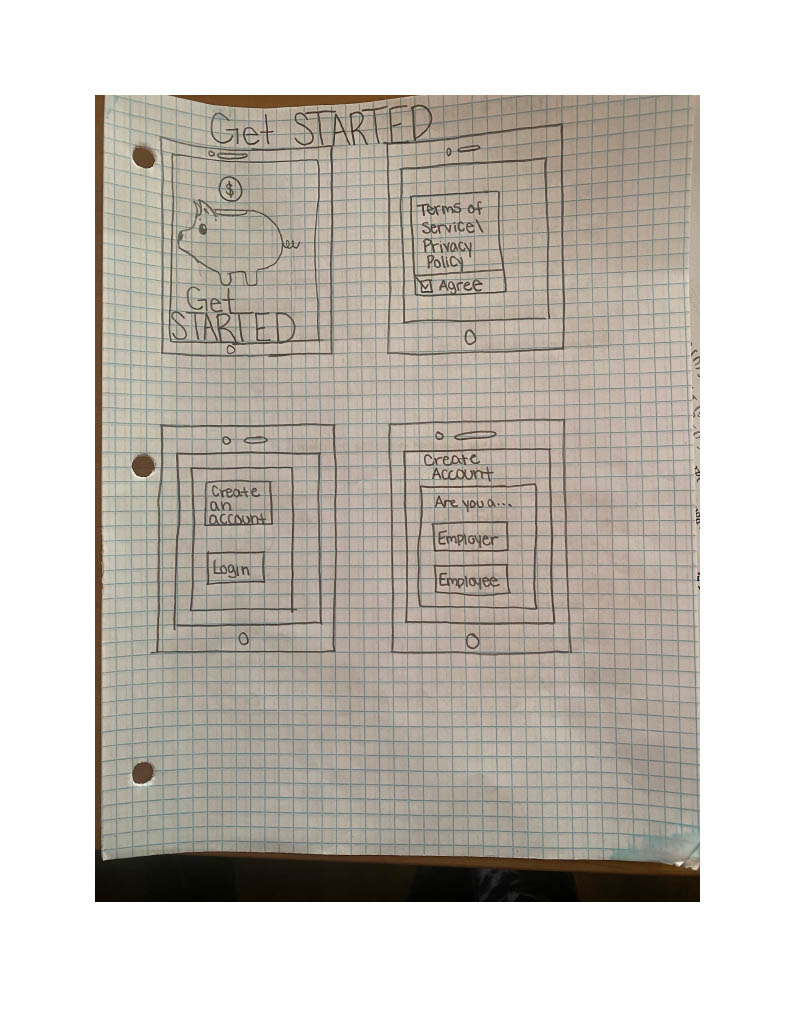 Get STARTED
$
Get
STARTED
Terms of
Service\
Privacy
Policy
Agree
Create
an
account
Login
Create
Account
Are you a...
Employer
Employee